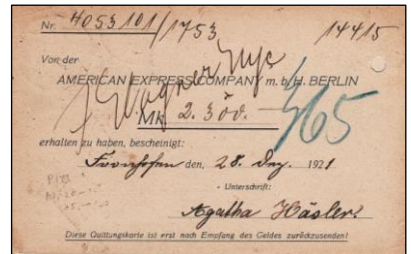 Nr. 4053101/1753 14415
Von der
AMERICAN EXPRESS COMPANY m. b. H. BERLIN
J. Wagner
Mk 2.300.—
365
erhalten zu haben, bescheinigt:
den, 28. Dez. 1921
- Unterschrift:
Agatha Häsler.
Diese Quittungskarte ist erst nach Empfang des Geldes zurückzusenden!